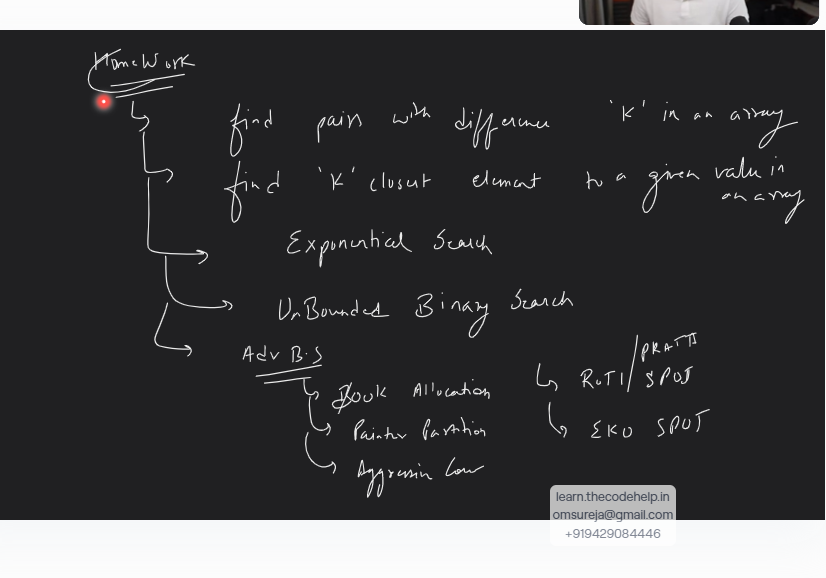 HomeWork
find pairs with difference 'K' in an array
find 'K' closest element to a given value in
an array
Exponential Search
UnBounded Binary Search
Adv B.S
Book Allocation
Painter Partition
Aggressive Cow
ROTI / PRATA
SPOJ
EKO SPOJ
learn.thecodehelp.in
omsureja@gmail.com
+919429084446